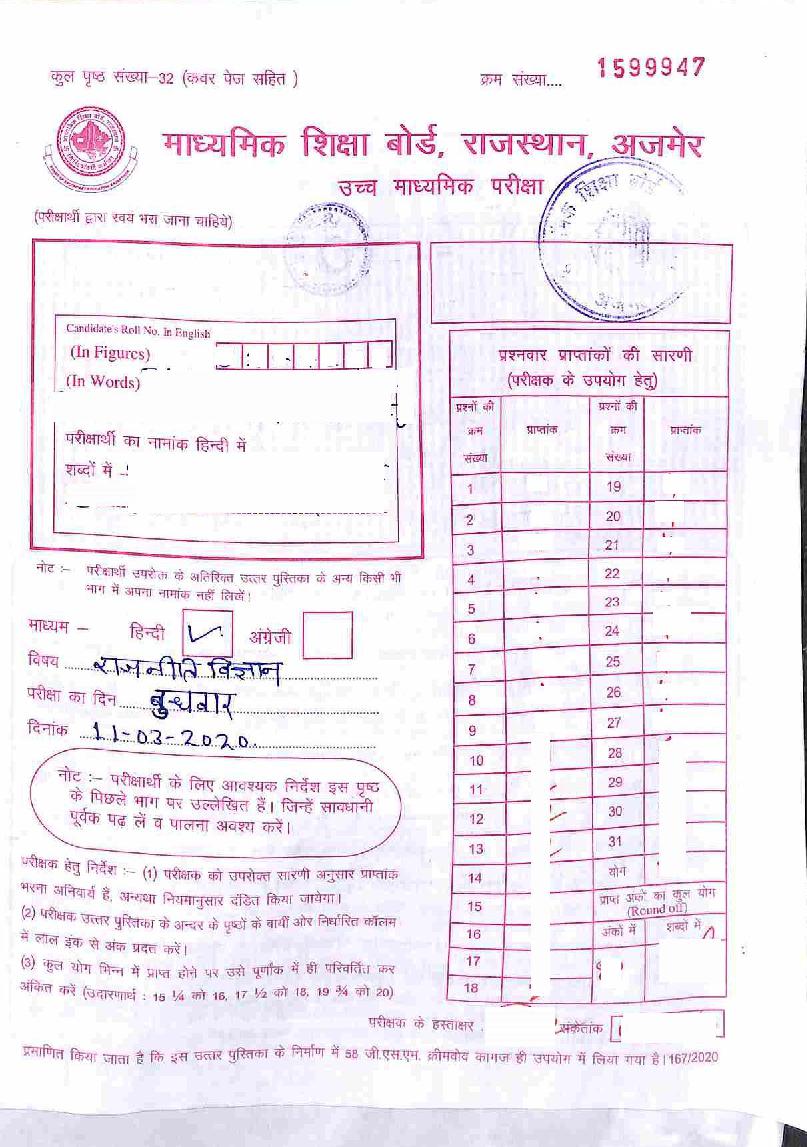 कुल पृष्ठ संख्या-32 (कवर पेज सहित )
क्रम संख्या.... 1599947
माध्यमिक शिक्षा बोर्ड, राजस्थान, अजमेर
उच्च माध्यमिक परीक्षा
(परीक्षार्थी द्वारा स्वयं भरा जाना चाहिये)
Candidate's Roll No. In English
(In Figures)
(In Words)
परीक्षार्थी का नामांक हिन्दी में
शब्दों में
नोट :- परीक्षार्थी उपरोक्त के अतिरिक्त उत्तर पुस्तिका के अन्य किसी भी
भाग में अपना नामांक नहीं लिखें।
माध्यम – हिन्दी ✓ अंग्रेजी
विषय राजनीति विज्ञान
परीक्षा का दिन बुधवार
दिनांक 11-03-2020
नोट :- परीक्षार्थी के लिए आवश्यक निर्देश इस पृष्ठ
के पिछले भाग पर उल्लेखित हैं। जिन्हें सावधानी
पूर्वक पढ़ लें व पालना अवश्य करें।
परीक्षक हेतु निर्देश :– (1) परीक्षक को उपरोक्त सारणी अनुसार प्राप्तांक
भरना अनिवार्य है, अन्यथा नियमानुसार दंडित किया जायेगा।
(2) परीक्षक उत्तर पुस्तिका के अन्दर के पृष्ठों के बायीं ओर निर्धारित कॉलम
में लाल इंक से अंक प्रदत करें।
(3) कुल योग भिन्न में प्राप्त होने पर उसे पूर्णांक में ही परिवर्तित कर
अंकित करें (उदारणार्थ : 15 ¼ को 16, 17 ½ को 18, 19 ¾ को 20)
प्रश्नवार प्राप्तांकों की सारणी
(परीक्षक के उपयोग हेतु)
प्रश्नों की क्रम संख्या
प्राप्तांक
प्रश्नों की क्रम संख्या
प्राप्तांक
1 19
2 20
3 21
4 22
5 23
6 24
7 25
8 26
9 27
10 28
11 29
12 30
13 31
14 योग
15 प्राप्त अंकों का कुल योग (Round off)
16 अंकों में शब्दों में
17
18
परीक्षक के हस्ताक्षर संकेतांक
प्रमाणित किया जाता है कि इस उत्तर पुस्तिका के निर्माण में 58 जी.एस.एम. क्रीमवोव कागज ही उपयोग में लिया गया है। 167/2020